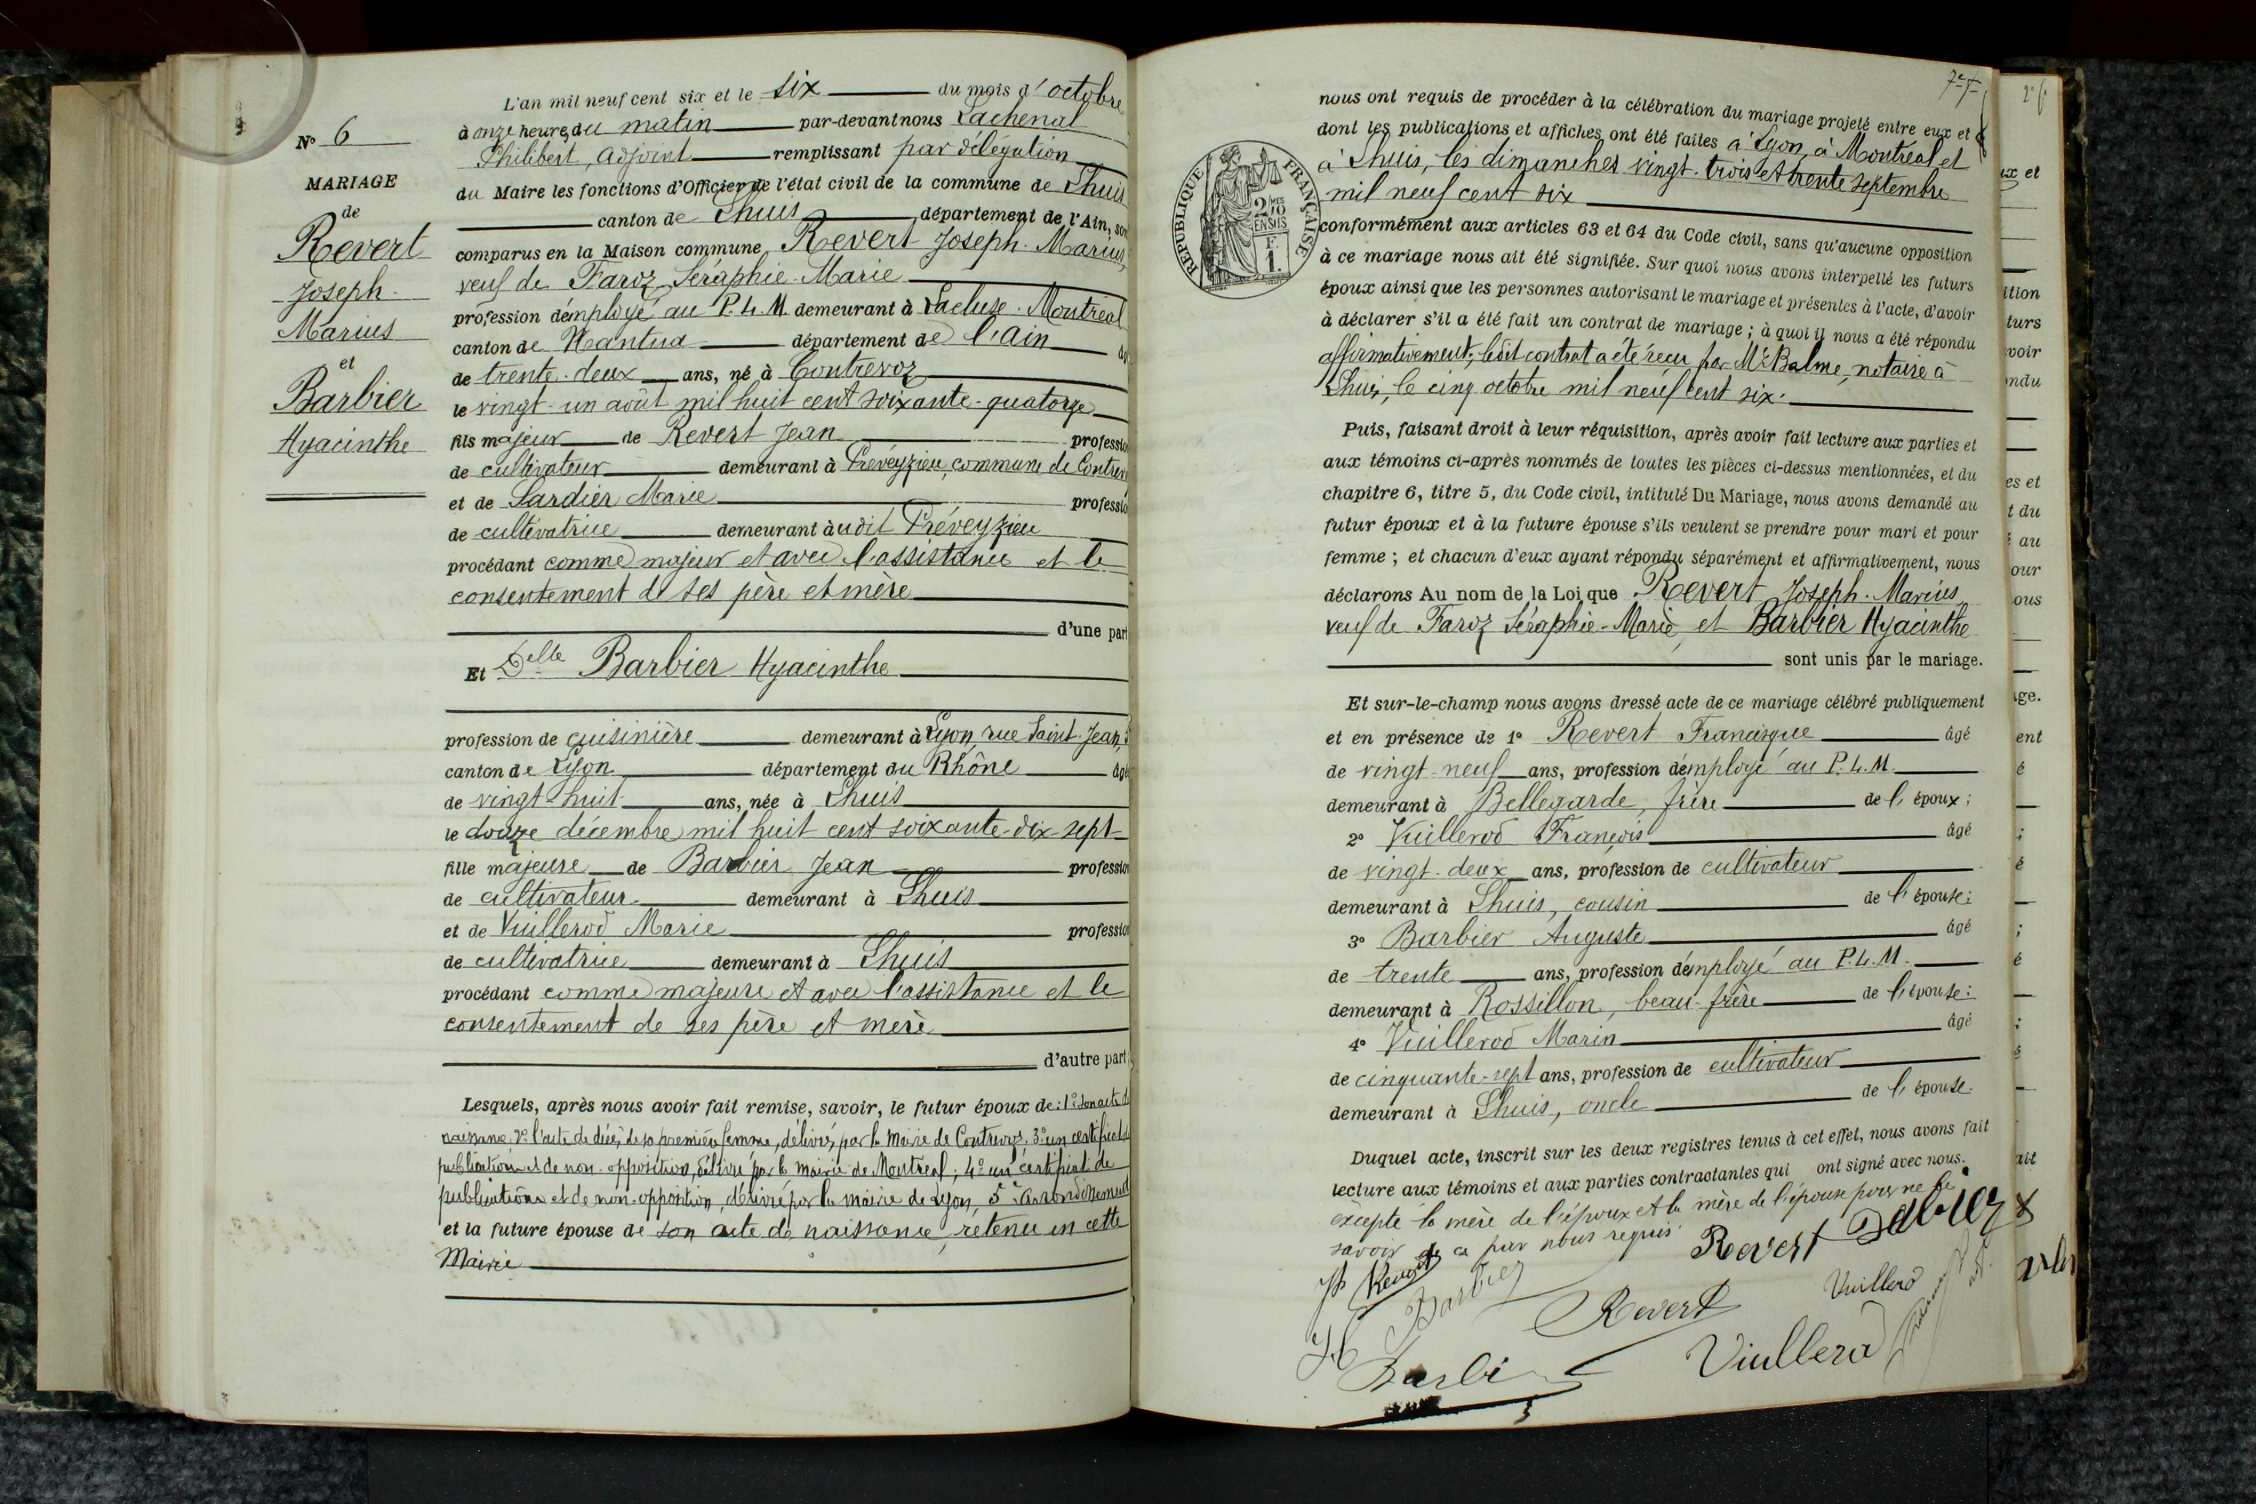 N° 6
MARIAGE
de
Revert
Joseph-
Marius
et
Barbier
Hyacinthe
L'an mil neuf cent six et le six du mois d'octobre
à onze heures du matin par-devant nous Lachenal
Philibert, adjoint remplissant par délégation
du Maire les fonctions d'Officier de l'état civil de la commune de Lhuis
canton de Lhuis département de l'Ain, son
comparus en la Maison commune, Revert Joseph-Marius,
veuf de Faroz Séraphie-Marie
profession d'employé au P.L.M. demeurant à Lacluse-Montréal
canton de Nantua département de l'Ain âgé
de trente-deux ans, né à Contrevoz
le vingt-un août mil huit cent soixante-quatorze
fils majeur de Revert Jean profession
de cultivateur demeurant à Préveyzieu, commune de Contrevoz
et de Sardier Marie profession
de cultivatrice demeurant audit Préveyzieu
procédant comme majeur et avec l'assistance et le
consentement de ses père et mère
d'une part
Et Delle Barbier Hyacinthe
profession de cuisinière demeurant à Lyon, rue Saint-Jean,
canton de Lyon département du Rhône âgé
de vingt-huit ans, née à Lhuis
le douze décembre mil huit cent soixante-dix-sept
fille majeure de Barbier Jean profession
de cultivateur demeurant à Lhuis
et de Vuillerod Marie profession
de cultivatrice demeurant à Lhuis
procédant comme majeure et avec l'assistance et le
consentement de ses père et mère
d'autre part
Lesquels, après nous avoir fait remise, savoir, le futur époux de: 1° son acte de
naissance 2° l'acte de décès de sa première femme, délivrés par la Mairie de Contrevoz. 3° un certificat de
publication et de non-opposition, délivré par la mairie de Montréal; 4° un certificat de
publications et de non-opposition, délivré par la mairie de Lyon, 5e arrondissement
et la future épouse de son acte de naissance, retenu en cette
Mairie
RÉPUBLIQUE FRANÇAISE
2/10
EN SUS
F.
1.
nous ont requis de procéder à la célébration du mariage projeté entre eux et
dont les publications et affiches ont été faites à Lyon, à Montréal et
à Lhuis, les dimanches vingt-trois et trente septembre
mil neuf cent six
conformément aux articles 63 et 64 du Code civil, sans qu'aucune opposition
à ce mariage nous ait été signifiée. Sur quoi nous avons interpellé les futurs
époux ainsi que les personnes autorisant le mariage et présentes à l'acte, d'avoir
à déclarer s'il a été fait un contrat de mariage; à quoi il nous a été répondu
affirmativement; ledit contrat a été reçu par Me Balme, notaire à
Lhuis, le cinq octobre mil neuf cent six.
Puis, faisant droit à leur réquisition, après avoir fait lecture aux parties et
aux témoins ci-après nommés de toutes les pièces ci-dessus mentionnées, et du
chapitre 6, titre 5, du Code civil, intitulé Du Mariage, nous avons demandé au
futur époux et à la future épouse s'ils veulent se prendre pour mari et pour
femme; et chacun d'eux ayant répondu séparément et affirmativement, nous
déclarons Au nom de la Loi que Revert Joseph-Marius
veuf de Faroz Séraphie-Marie, et Barbier Hyacinthe
sont unis par le mariage.
Et sur-le-champ nous avons dressé acte de ce mariage célébré publiquement
et en présence de 1° Revert Francisque âgé
de vingt-neuf ans, profession d'employé au P.L.M.
demeurant à Bellegarde, frère de l'époux;
2° Vuillerod François âgé
de vingt-deux ans, profession de cultivateur
demeurant à Lhuis, cousin de l'épouse;
3° Barbier Auguste âgé
de trente ans, profession d'employé au P.L.M.
demeurant à Rossillon, beau-frère de l'épouse;
4° Vuillerod Marin âgé
de cinquante-sept ans, profession de cultivateur
demeurant à Lhuis, oncle de l'épouse.
Duquel acte, inscrit sur les deux registres tenus à cet effet, nous avons fait
lecture aux témoins et aux parties contractantes qui ont signé avec nous.
excepté la mère de l'époux et la mère de l'épouse pour ne le
savoir de ce par nous requis.
Revert Barbier
Revert
Barbier
Revert
Vuillerod
Barbi
Viullerod